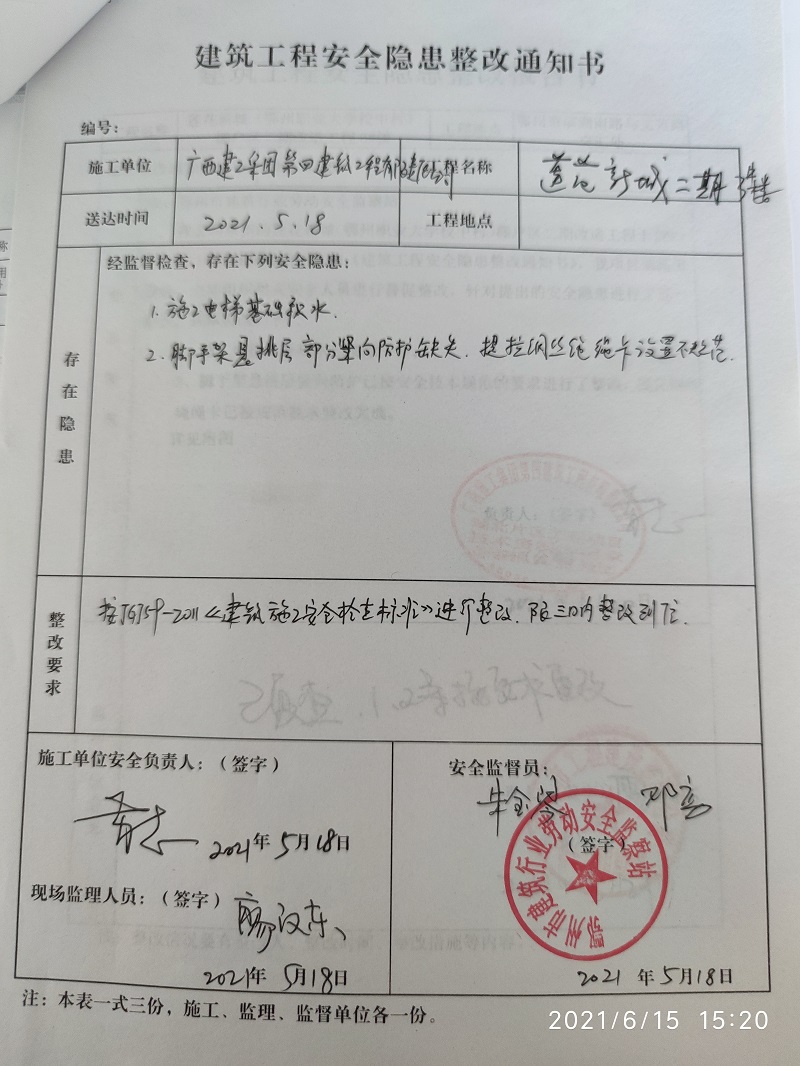 建筑工程安全隐患整改通知书
编号：
施工单位 广西建工集团第四建筑工程有限责任公司 工程名称 新城二期
送达时间 2021.5.18 工程地点
存在隐患
经监督检查，存在下列安全隐患：
1. 施工电梯基础积水.
2. 脚手架悬挑层部分竖向防护缺失. 提拉钢丝绳绳卡设置不规范.
整改要求
按JGJ59-2011《建筑施工安全检查标准》进行整改. 限三日内整改到位.
施工单位安全负责人：（签字）
2021年5月18日
现场监理人员：（签字）
2021年5月18日
安全监督员：
（签字）
鄂州市建筑行业劳动安全监察站
2021年5月18日
注：本表一式三份，施工、监理、监督单位各一份。
2021/6/15 15:20